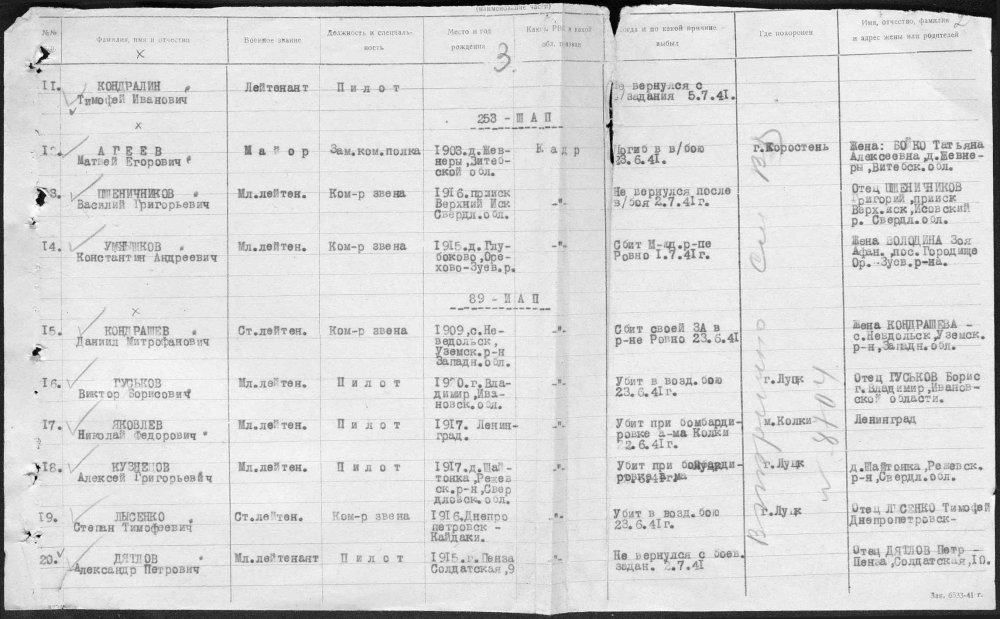 (наименование части)
№№
Фамилия, имя и отчество
Военное звание
Должность и специаль-
ность
Место и год
рождения
Каким РВК и какой
обл. призван
Когда и по какой причине
выбыл
Где похоронен
Имя, отчество, фамилия
и адрес жены или родителей
2
3.
11. КОНДРАЛИН
Тимофей Иванович
Лейтенант
Пилот
Не вернулся с
в/задания 5.7.41.
253 - ШАП
12. АГЕЕВ
Матвей Егорович
Майор
Зам.ком.полка
1903.д.Жев-
неры,Витеб-
ской обл.
Кадр
Погиб в в/бою
23.6.41.
г.Коростень
Жена: БОЙКО Татьяна
Алексеевна,д.Жевне-
ры,Витебск.обл.
13. ПШЕНИЧНИКОВ
Василий Григорьевич
Мл.лейтен.
Ком-р звена
1916.прииск
Верхний Иск
Свердл.обл.
-"-
Не вернулся после
в/боя 2.7.41г.
Отец ПШЕНИЧНИКОВ
Григорий,прииск
Верх.иск,Исовский
р. Свердл.обл.
14.
Константин Андреевич
Мл.лейтен.
Ком-р звена
1915.д.Глу-
боково,Оре-
хово-Зуев.р.
-"-
Сбит М-щд.р-пе
Ровно 1.7.41г.
Жена ВОЛОДИНА Зоя
Афан.,пос.Городище
Ор. Зуев.р-на.
89 - ИАП
15. КОНДРАШЕВ
Даниил Митрофанович
Ст.лейтен.
Ком-р звена
1909,с.Не-
ведольск,
Уземск.р-н
Западн.обл.
-"-
Сбит своей ЗА в
р-не Ровно 23.6.41
Жена КОНДРАШЕВА -
с.Невдольск,Уземск.
р-н,Западн.обл.
16. ГУСЬКОВ
Виктор Борисович
Мл.лейтен.
Пилот
1920.г.Вла-
димир,Ива-
новск.обл.
-"-
Убит в возд.бою
23.6.41г.
г.Луцк
Отец ГУСЬКОВ Борис
г.Владимир,Иванов-
ской области.
17. ЯКОВЛЕВ
Николай Федорович
Мл.лейтен.
Пилот
1917. Ленин-
град.
-"-
Убит при бомбарди-
ровке а-ма Колки
22.6.41г.
м.Колки
Ленинград
18. КУЗНЕЦОВ
Алексей Григорьевич
Мл.лейтен.
Пилот
1917.д.Шай-
тонка,Режев
ск.р-н,Свер
дловск.обл.
-"-
Убит при бомбарди-
ровке
г.Луцк
д.Шайтонка,Режевск.
р-н,Свердл.обл.
19. ЛЫСЕНКО
Степан Тимофеевич
Ст.лейтен.
Ком-р звена
1916.Днепро
петровск -
Кайдаки.
-"-
Убит в возд.бою
23.6.41г.
г.Луцк
Отец ЛЫСЕНКО Тимофей
Днепропетровск-
20. ДЯТЛОВ
Александр Петрович
Мл.лейтенант
Пилот
1915.г.Пенза
Солдатская,9
-"-
Не вернулся с боев.
задан. 2.7.41
Отец ДЯТЛОВ Петр -
Пенза,Солдатская,10.
Зак. 6533-41 г.